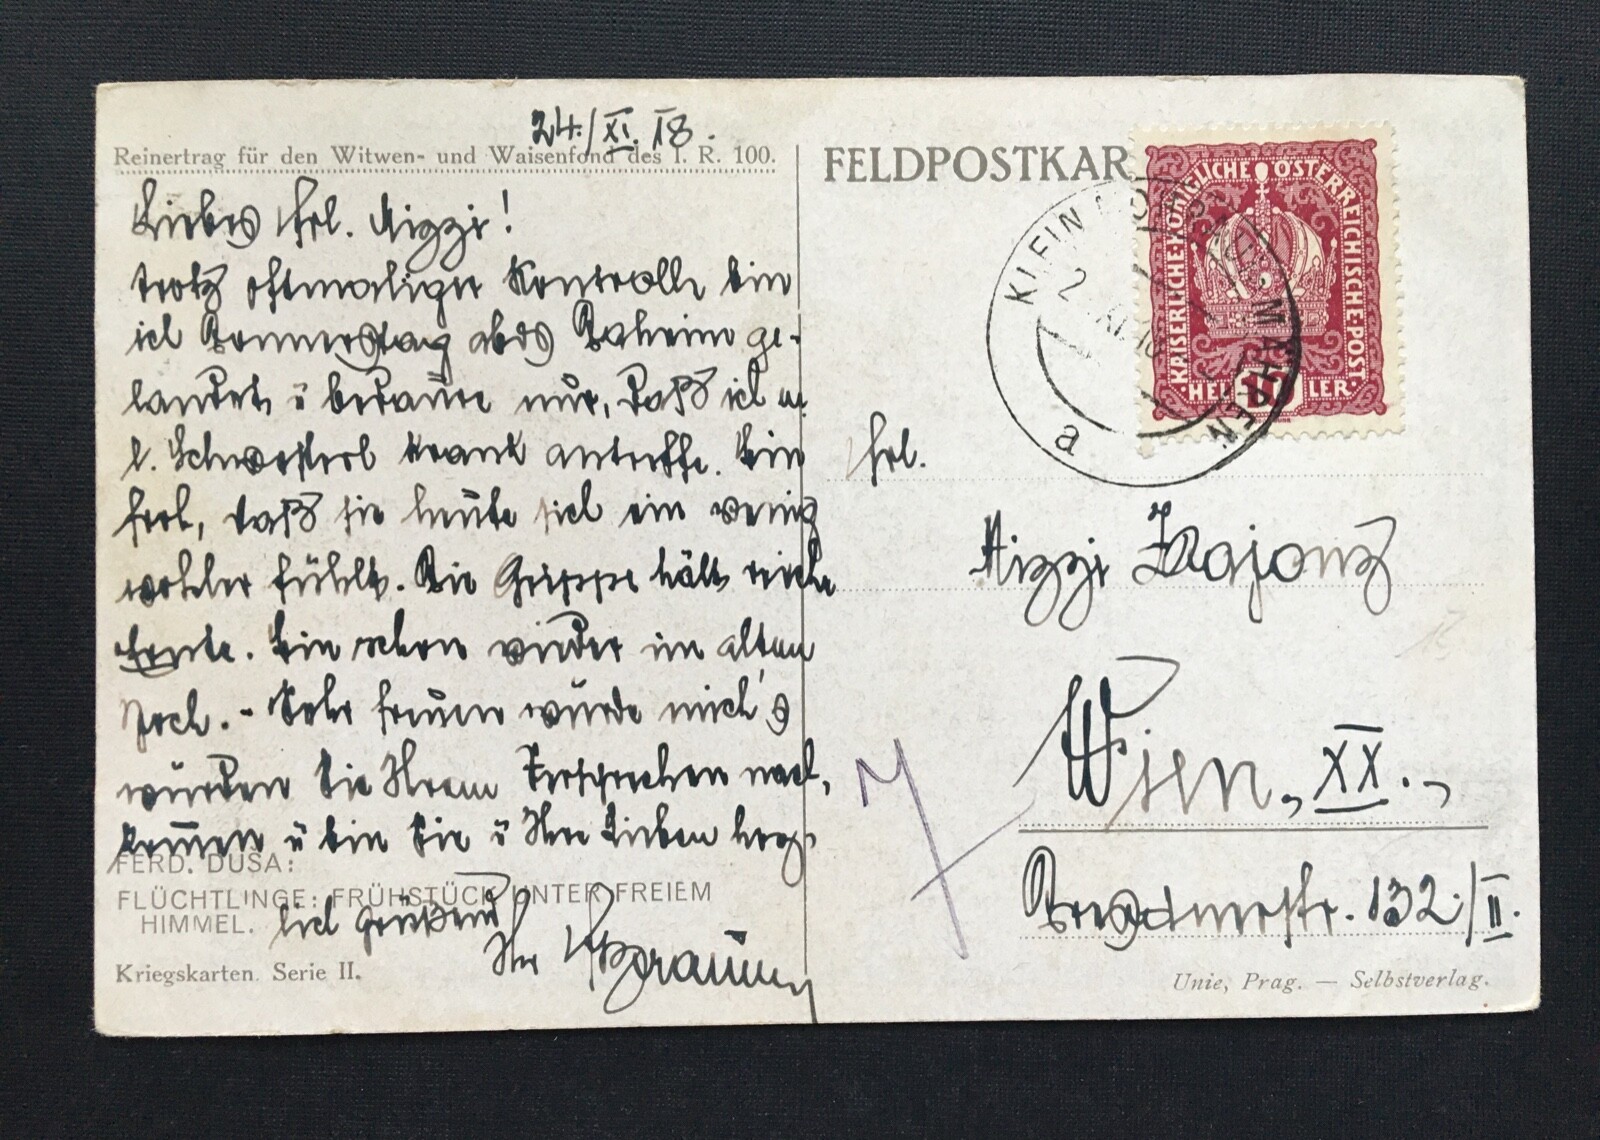 24./XI. 18.
Reinertrag für den Witwen- und Waisenfond des I. R. 100.
Liebes Frl. Mizzi!
trotz oftmaliger Kontrolle bin
ich Donnerstag abds Daheim ge-
landet u bedaure nur, daß ich m.
l. Schwesterl krank antreffe. Bin
froh, daß sie heute sich ein wenig
wohler fühlt. Die Grippe hält reiche
Ernte. Bin schon wieder im alten
Joch. - Sehr freuen würde mich's
würden Sie Ihrem Versprechen nach-
kommen u bin Sie u Ihre Lieben herzl
FERD. DUSA:
FLÜCHTLINGE: FRÜHSTÜCK UNTER FREIEM
HIMMEL.
grüßend
Ihr
Kriegskarten. Serie II.
FELDPOSTKAR
KAISERLICHE KÖNIGLICHE ÖSTERREICHISCHE POST
10 HELLER
KLEIN MÄHREN
a
Frl.
Mizzi Zajonz
Wien, XX.,
Dresdnerstr. 132./II.
Unie, Prag. — Selbstverlag.